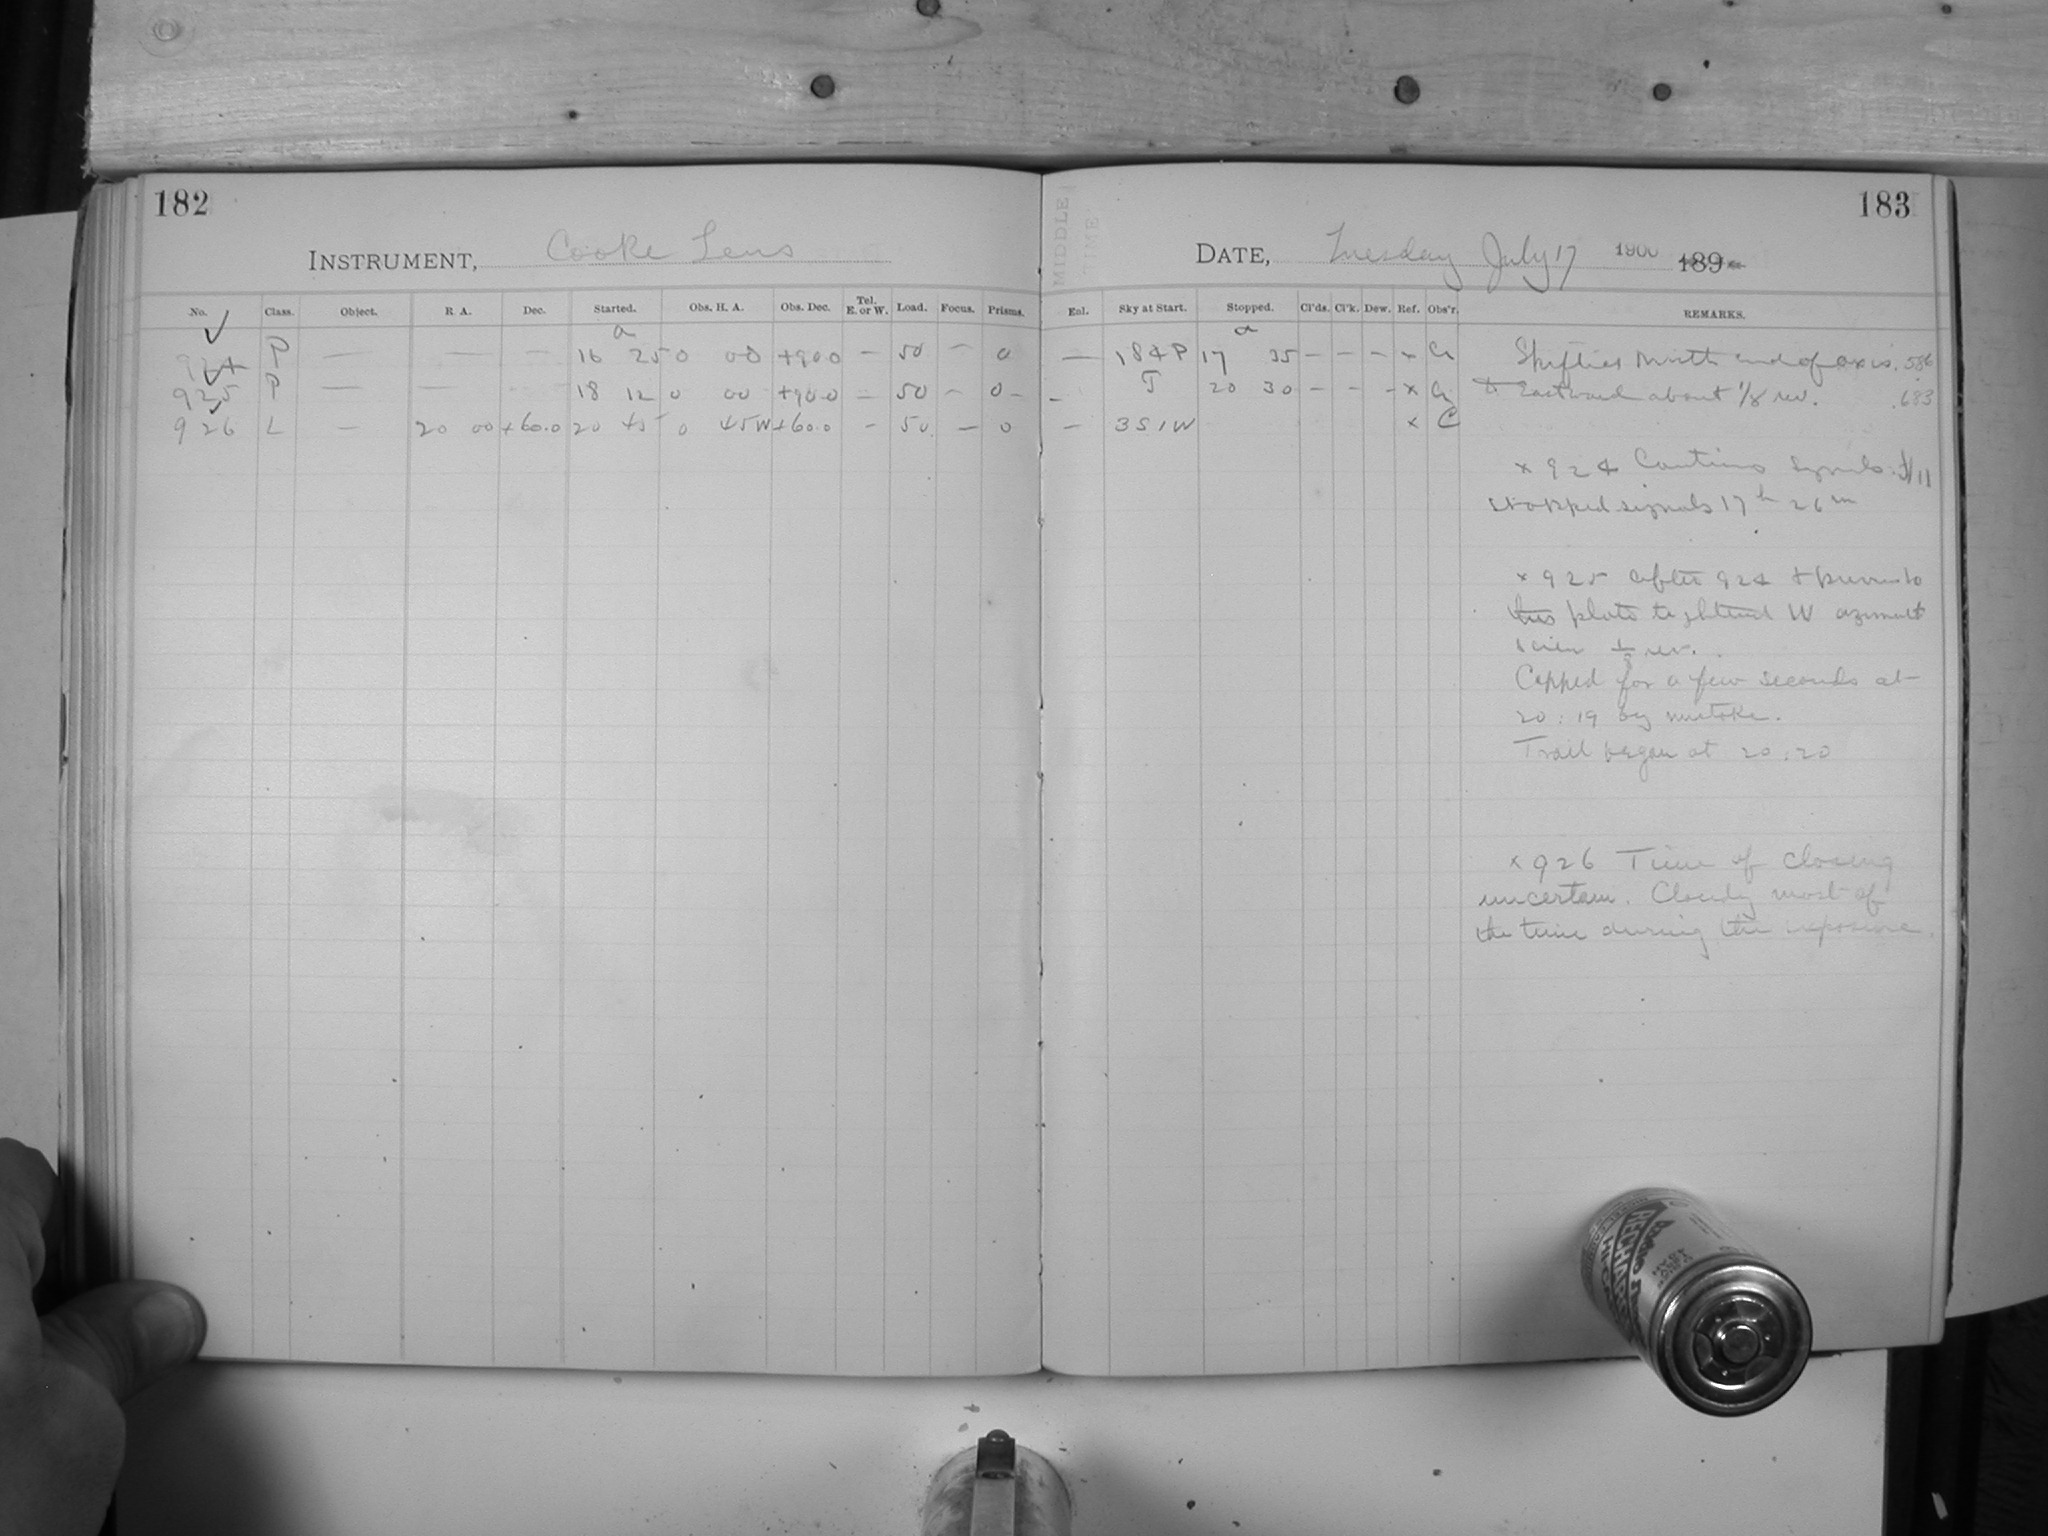 182
INSTRUMENT, Cooke Lens
No. Class. Object. R. A. Dec. Started. Obs. H. A. Obs. Dec. Tel. E. or W. Load. Focus. Prisms.
a
924 P — — — 16 25 0 00 +90.0 — 50 — 0
925 P — — — 18 12 0 00 +90.0 — 50 — 0 -
926 L — 20 00 +60.0 20 45 0 45W +60.0 — 50 — 0
MIDDLE
TIME
183
DATE, Tuesday July 17 1900 189
Enl. Sky at Start. Stopped. Cl'ds. Cl'k. Dew. Ref. Obs'r. REMARKS.
a
— 184P 17 35 — — — x
- J 20 30 — — - x
— 3S1W x C
north end of axis. .586
Eastward about 1/8 rev. .683
x 924 signals
stopped signals 17 h 26 m
x 925 After 924 +
this plate tightened W azimuth
screw 1/8 rev.
Capped for a few seconds at
20 : 19 by mistake.
Trail began at 20 : 20
x 926 Time of closing
uncertain. Cloudy most of
the time during the exposure.